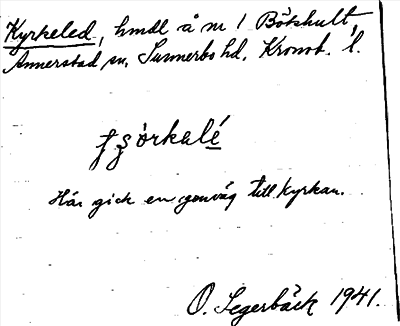 Kyrkeled, hmdl å nr 1 Bökhult,
Annerstad sn, Sunnerbo hd, Kronob. l.
Här gick en genväg till kyrkan.
O. Segerbäck 1941.